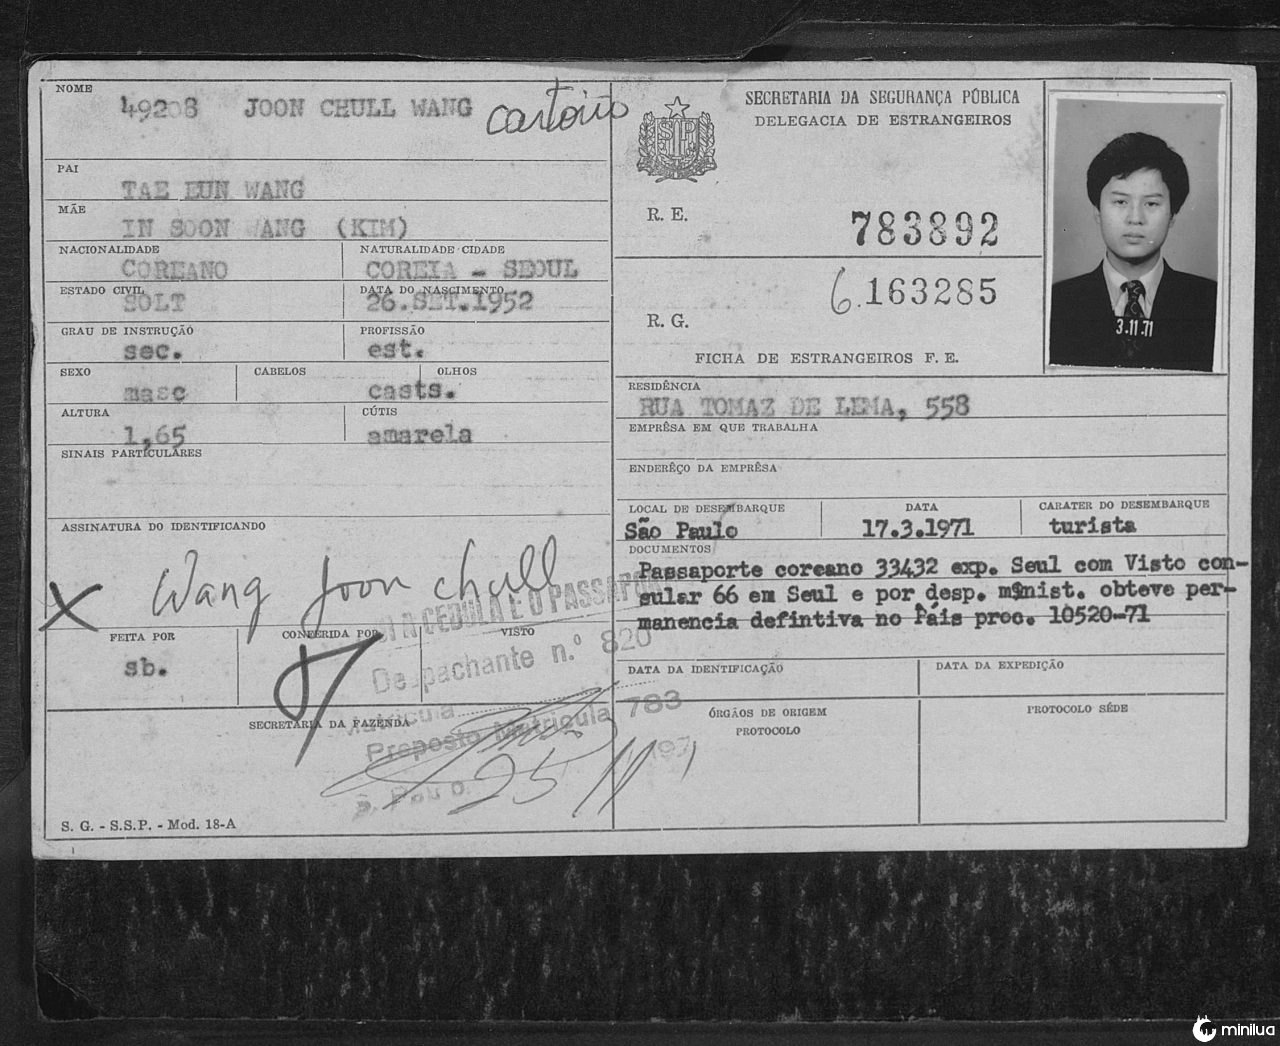 NOME
49208 JOON CHULL WANG
cartório
PAI
TAE EUN WANG
MÃE
IN SOON WANG (KIM)
NACIONALIDADE NATURALIDADE CIDADE
COREANO COREIA - SEOUL
ESTADO CIVIL DATA DO NASCIMENTO
SOLT 26.SET.1952
GRAU DE INSTRUÇÃO PROFISSÃO
sec. est.
SEXO CABELOS OLHOS
masc casts.
ALTURA CÚTIS
1,65 amarela
SINAIS PARTICULARES
ASSINATURA DO IDENTIFICANDO
X Wang Joon chull
A CEDULA E O PASSAPOR
FEITA POR CONFERIDA POR VISTO
sb.
Despachante n.º 820
Matricula
SECRETARIA DA FAZENDA
Preposto Matricula 783
S. Paulo 25/11/1971
S. G. - S.S.P. - Mod. 18-A
SECRETARIA DA SEGURANÇA PÚBLICA
DELEGACIA DE ESTRANGEIROS
SP
R. E. 783892
6.163285
R. G.
FICHA DE ESTRANGEIROS F. E.
3.11.71
RESIDÊNCIA
RUA TOMAZ DE LEMA, 558
EMPRÊSA EM QUE TRABALHA
ENDERÊÇO DA EMPRÊSA
LOCAL DE DESEMBARQUE DATA CARATER DO DESEMBARQUE
São Paulo 17.3.1971 turista
DOCUMENTOS
Passaporte coreano 33432 exp. Seul com Visto con-
sular 66 em Seul e por desp. m$nist. obteve per-
manencia defintiva no País proc. 10520-71
DATA DA IDENTIFICAÇÃO DATA DA EXPEDIÇÃO
ÓRGÃOS DE ORIGEM PROTOCOLO SÉDE
PROTOCOLO
minilua